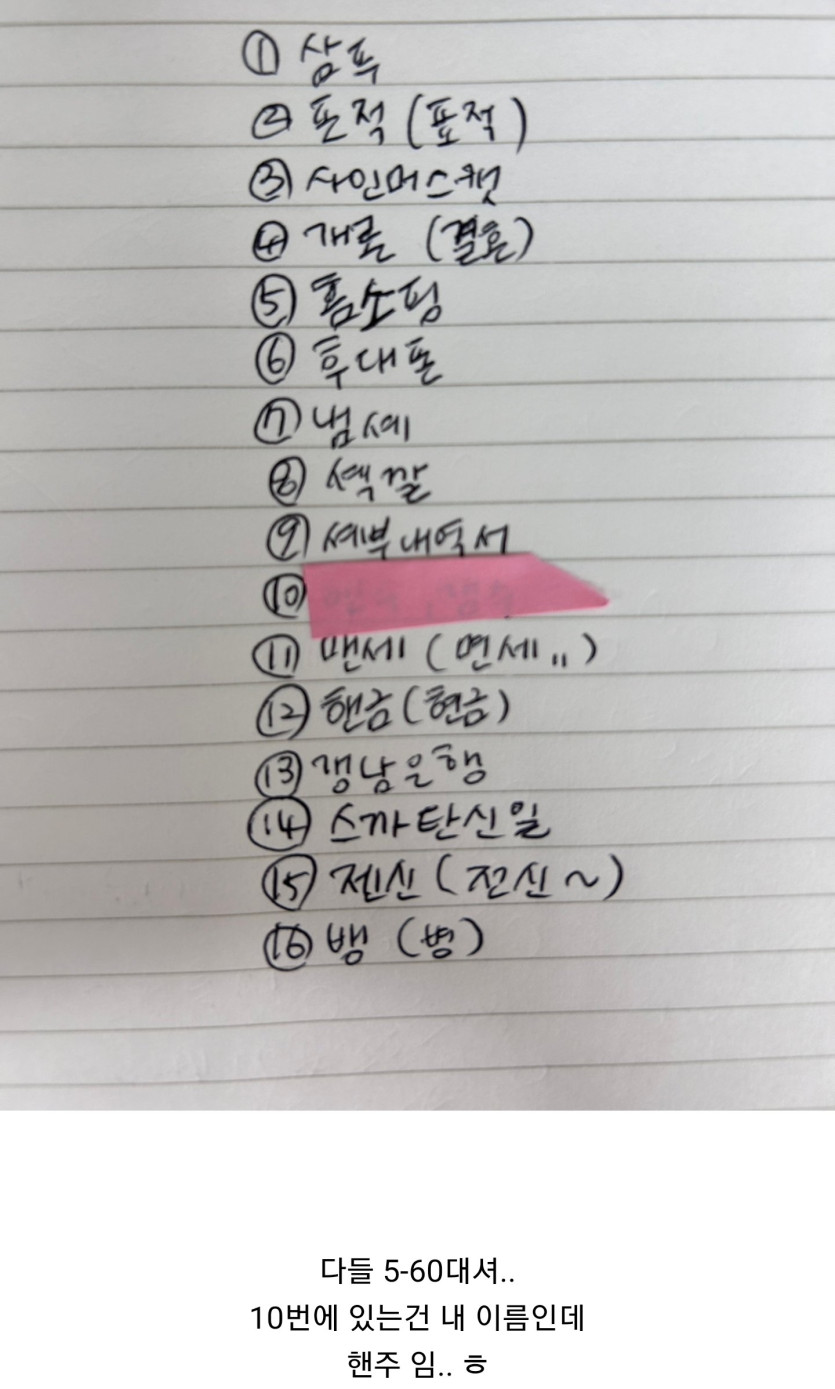 ① 삼푸
② 포적 (표적)
③ 사인머스캣
④ 개론 (결혼)
⑤ 홈소핑
⑥ 후대폰
⑦ 냄셰
⑧ 셱깔
⑨ 셰부내역서
⑩
⑪ 맨세 (면세")
⑫ 핸금 (현금)
⑬ 갱남은행
⑭ 스까탄신일
⑮ 젠신 (전신~)
⑯ 뱅 (병)
다들 5-60대셔..
10번에 있는건 내 이름인데
핸주 임.. ㅎ